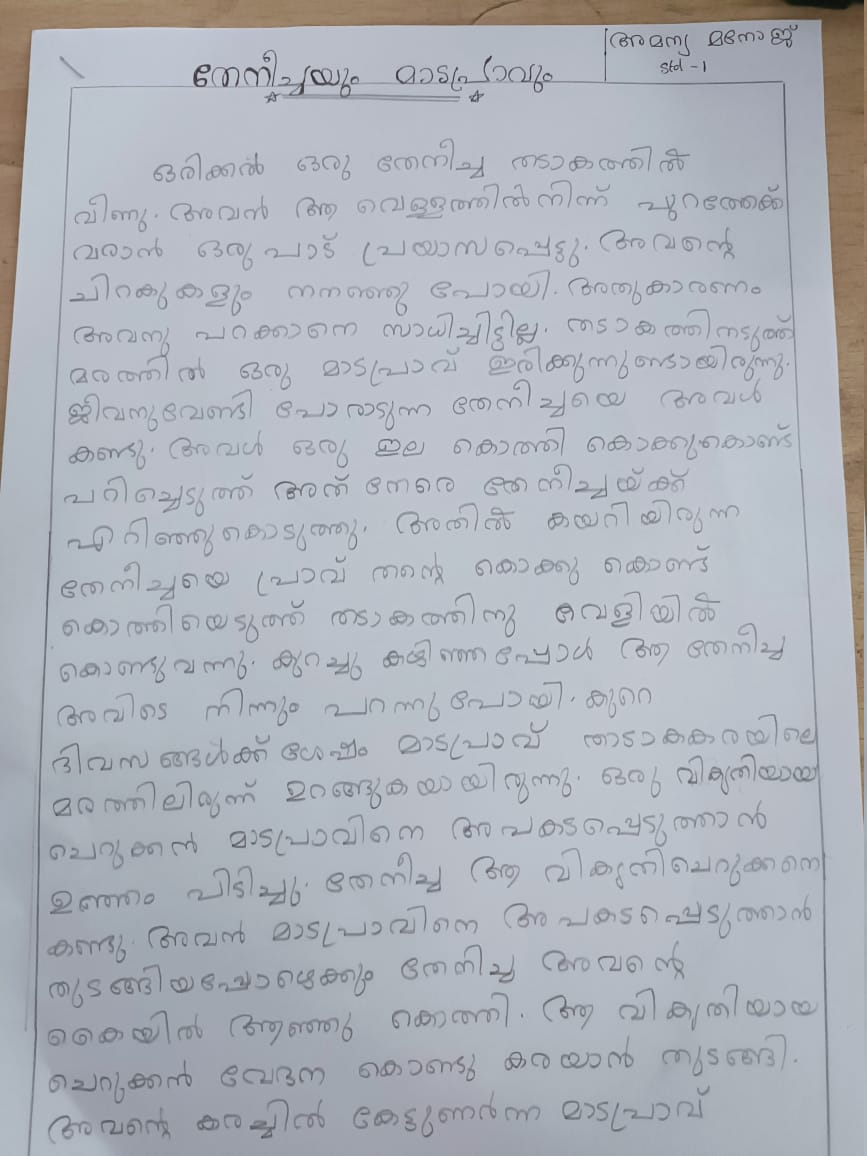 അമന്യ മനോജ്
Std - 1
തേനീച്ചയും മാടപ്രാവും
ഒരിക്കൽ ഒരു തേനീച്ച തടാകത്തിൽ
വീണു. അവൻ ആ വെള്ളത്തിൽനിന്ന് പുറത്തേക്ക്
വരാൻ ഒരുപാട് പ്രയാസപ്പെട്ടു. അവന്റെ
ചിറകുകളും നനഞ്ഞു പോയി. അതുകാരണം
അവനു പറക്കാനെ സാധിച്ചിട്ടില്ല. തടാകത്തിനടുത്ത്
മരത്തിൽ ഒരു മാടപ്രാവ് ഇരിക്കുന്നുണ്ടായിരുന്നു.
ജീവനുവേണ്ടി പോരാടുന്ന തേനീച്ചയെ അവൾ
കണ്ടു. അവൾ ഒരു ഇല കൊത്തി കൊക്കുകൊണ്ട്
പറിച്ചെടുത്ത് അത് നേരെ തേനീച്ചയ്ക്ക്
എറിഞ്ഞുകൊടുത്തു. അതിൽ കയറിയിരുന്ന
തേനീച്ചയെ പ്രാവ് തന്റെ കൊക്കു കൊണ്ട്
കൊത്തിയെടുത്ത് തടാകത്തിനു വെളിയിൽ
കൊണ്ടുവന്നു. കുറച്ചു കഴിഞ്ഞപ്പോൾ ആ തേനീച്ച
അവിടെ നിന്നും പറന്നുപോയി. കുറെ
ദിവസങ്ങൾക്ക് ശേഷം മാടപ്രാവ് താടാകകരയിലെ
മരത്തിലിരുന്ന് ഉറങ്ങുകയായിരുന്നു. ഒരു വികൃതിയായ
ചെറുക്കൻ മാടപ്രാവിനെ അപകടപ്പെടുത്താൻ
ഉഞ്ഞം പിടിച്ചു. തേനീച്ച ആ വികൃതിചെറുക്കനെ
കണ്ടു. അവൻ മാടപ്രാവിനെ അപകടപ്പെടുത്താൻ
തുടങ്ങിയപ്പോഴേക്കും തേനീച്ച അവന്റെ
കൈയിൽ ആഞ്ഞു കൊത്തി. ആ വികൃതിയായ
ചെറുക്കൻ വേദന കൊണ്ടു കരയാൻ തുടങ്ങി.
അവന്റെ കരച്ചിൽ കേട്ടുണർന്ന മാടപ്രാവ്